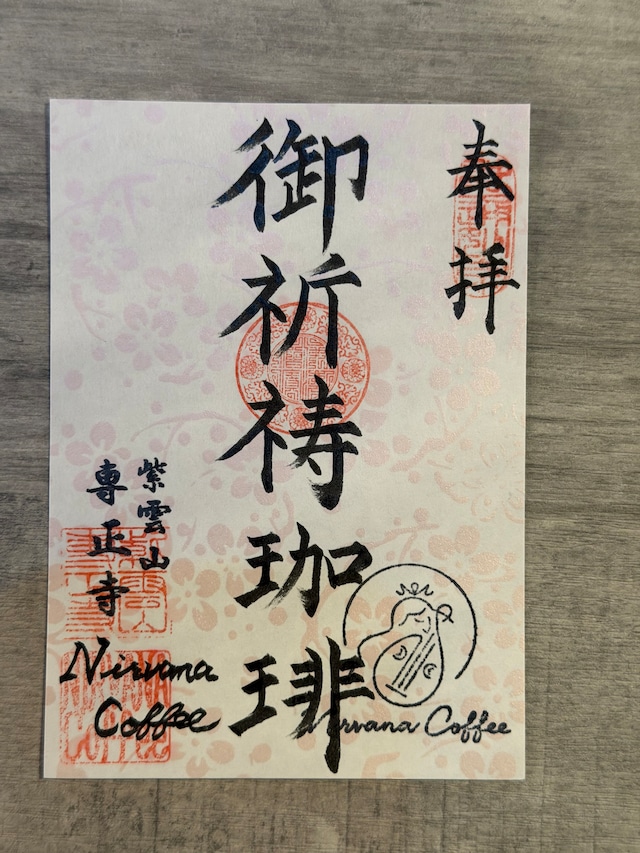 奉拝
御祈祷珈琲
紫雲山
専正寺
Nirvana
Coffee
NIRVANA
COFFEE
Nirvana Coffee